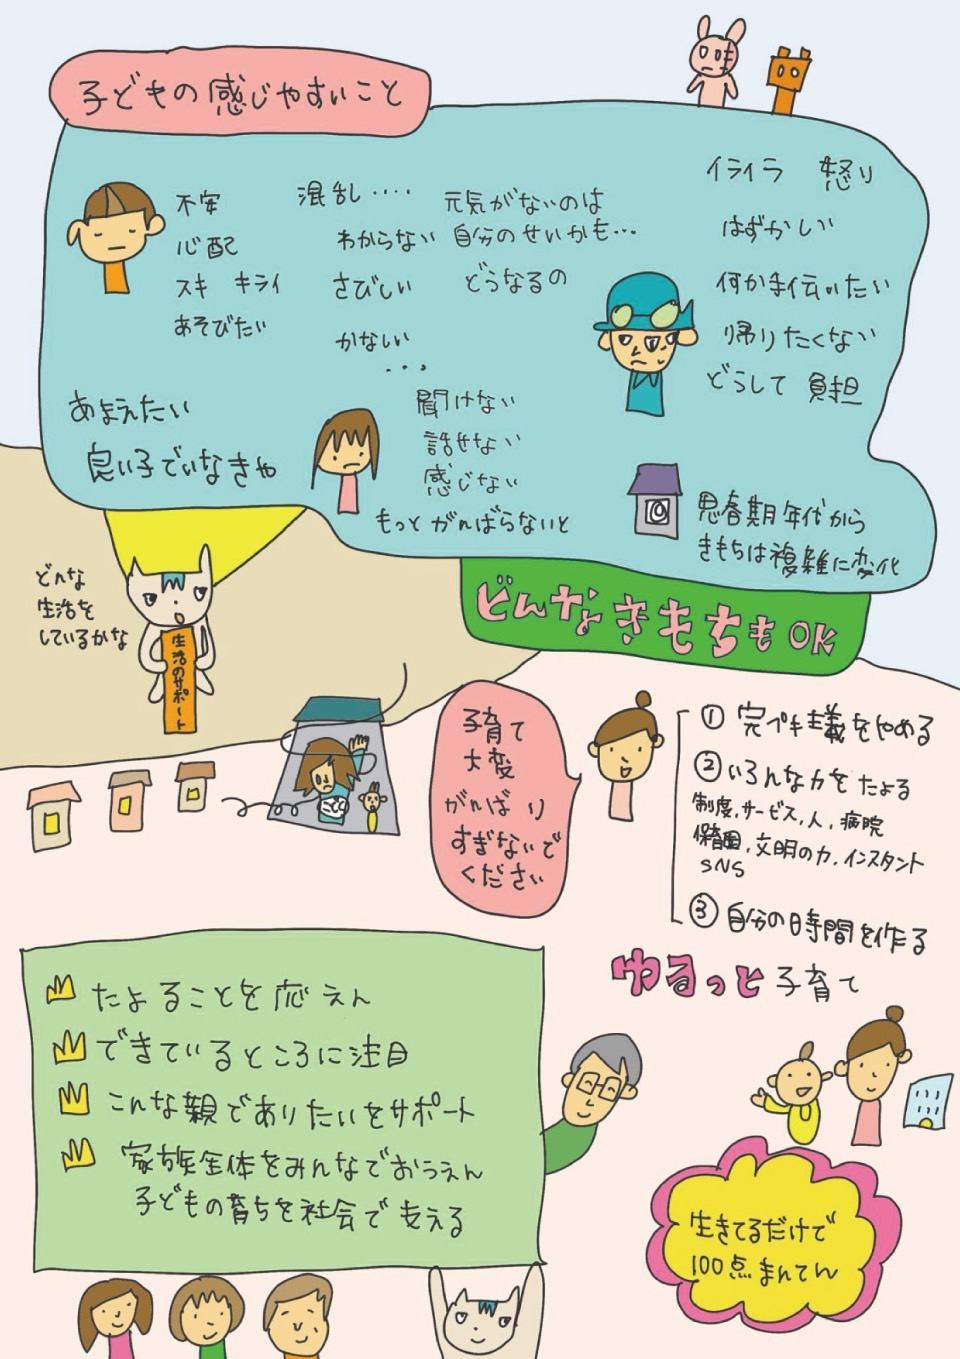 子どもの感じやすいこと
不安
心配
スキ キライ
あそびたい
混乱‥‥
わからない
さびしい
かなしい
・・・
元気がないのは
自分のせいかも…
どうなるの
イライラ 怒り
はずかしい
何か手伝いたい
帰りたくない
どうして 負担
あまえたい
良い子でいなきゃ
聞けない
話せない
感じない
もっとがんばらないと
思春期年代から
きもちは複雑に変化
どんなきもちもOK
どんな
生活を
しているかな
生活のサポート
子育て
大変
がんばり
すぎないで
ください
① 完ペキ主義をやめる
② いろんな力をたよる
制度,サービス,人,病院
保育園,文明の力,インスタント
SNS
③ 自分の時間を作る
ゆるっと子育て
たよることを応えん
できているところに注目
こんな親でありたいをサポート
家族全体をみんなでおうえん
子どもの育ちを社会で支える
生きてるだけで
100点まんてん